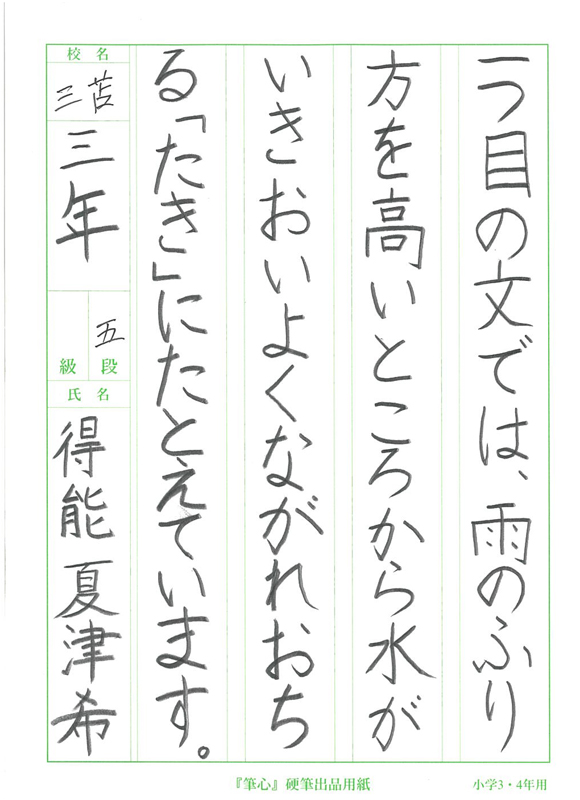 一つ目の文では、雨のふり
方を高いところから水が
いきおいよくながれおち
る「たき」にたとえています。
校名
三苫
三年
五
級段
氏名
得能 夏津希
『筆心』硬筆出品用紙
小学3・4年用